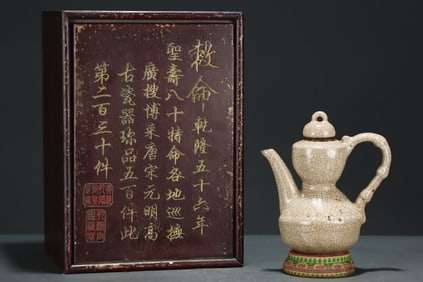 敕命乾隆五十六年
聖壽八十特命各地巡撫
廣搜博采唐宋元明高
古瓷器珍品五百件此
第二百三十件